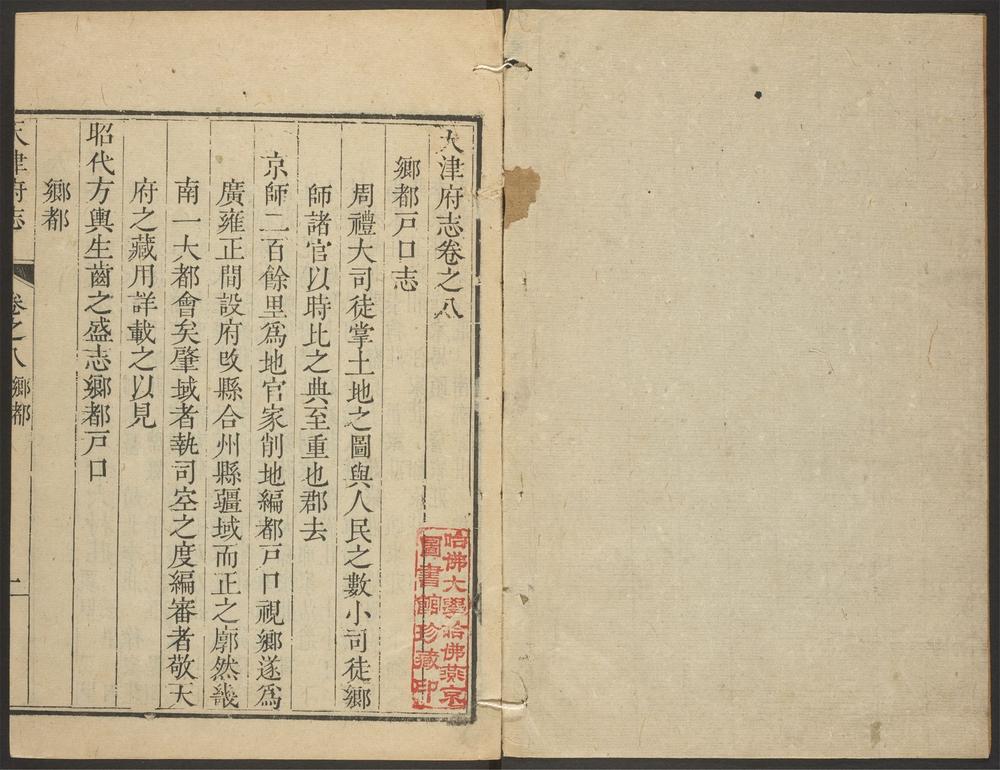 天津府志卷之八
鄉都戸口志
周禮大司徒掌土地之圖與人民之數小司徒鄉
師諸官以時比之典至重也郡去
京師二百餘里爲地官家削地編都戸口視鄉遂爲
廣雍正間設府改縣合州縣疆域而正之廓然畿
南一大都會矣肇域者執司空之度編審者敬天
府之藏用詳載之以見
昭代方輿生齒之盛志鄉都戸口
鄉都
天津府志
卷之八鄉都
一
哈佛大學哈佛燕京
圖書館珍藏印